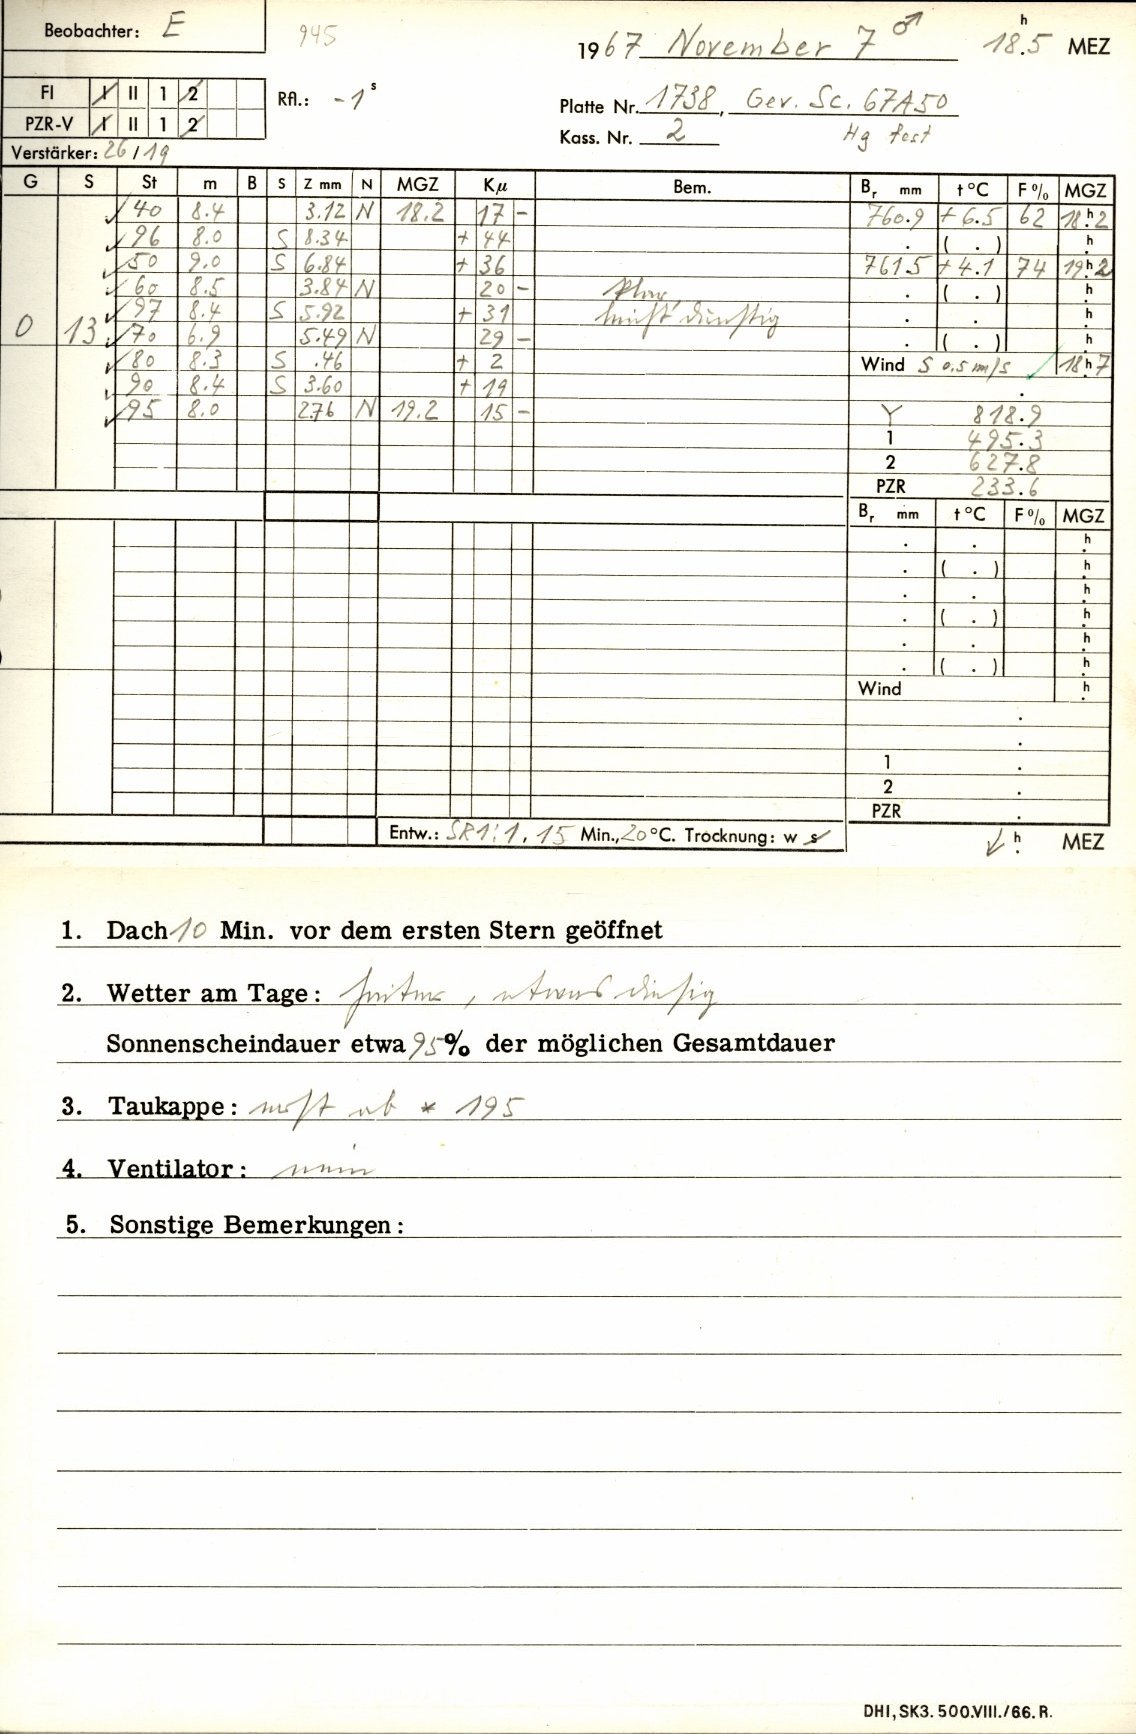 Beobachter: E
945
1967 November 7 ♂ 18.5 h MEZ
FI I II 1 2
Rfl.: -1 s
Platte Nr. 1738, Gev. Sc. 67A50
PZR-V I II 1 2
Kass. Nr. 2 Hg fest
Verstärker: 26/19
G S St m B S Z mm N MGZ Kμ Bem. Br mm t °C F % MGZ
40 8.4 3.12 N 18.2 17 - 760.9 +6.5 62 18 h 2
96 8.0 S 8.34 + 44 . ( . ) h
50 9.0 S 6.84 + 36 761.5 +4.1 74 19 h 2
60 8.5 3.84 N 20 - klar, . ( . ) h
97 8.4 S 5.92 + 31 leicht dunstig . . h
0 13 70 6.9 5.49 N 29 - . ( . ) h
80 8.3 S .46 + 2 Wind S 0.5 m/s 18 h 7
90 8.4 S 3.60 + 19 .
95 8.0 2.76 N 19.2 15 - Y 818.9
1 495.3
2 627.8
PZR 233.6
Br mm t °C F % MGZ
. . h
. ( . ) h
. . h
. ( . ) h
. . h
. ( . ) h
Wind h
.
.
1 .
2 .
PZR .
Entw.: SR1:1, 15 Min., 20 °C. Trocknung: w s
h MEZ
1. Dach 10 Min. vor dem ersten Stern geöffnet
2. Wetter am Tage: heiter, etwas diesig
Sonnenscheindauer etwa 95% der möglichen Gesamtdauer
3. Taukappe: ab * 195
4. Ventilator: nein
5. Sonstige Bemerkungen:
DHI, SK3. 500.VIII./66. R.